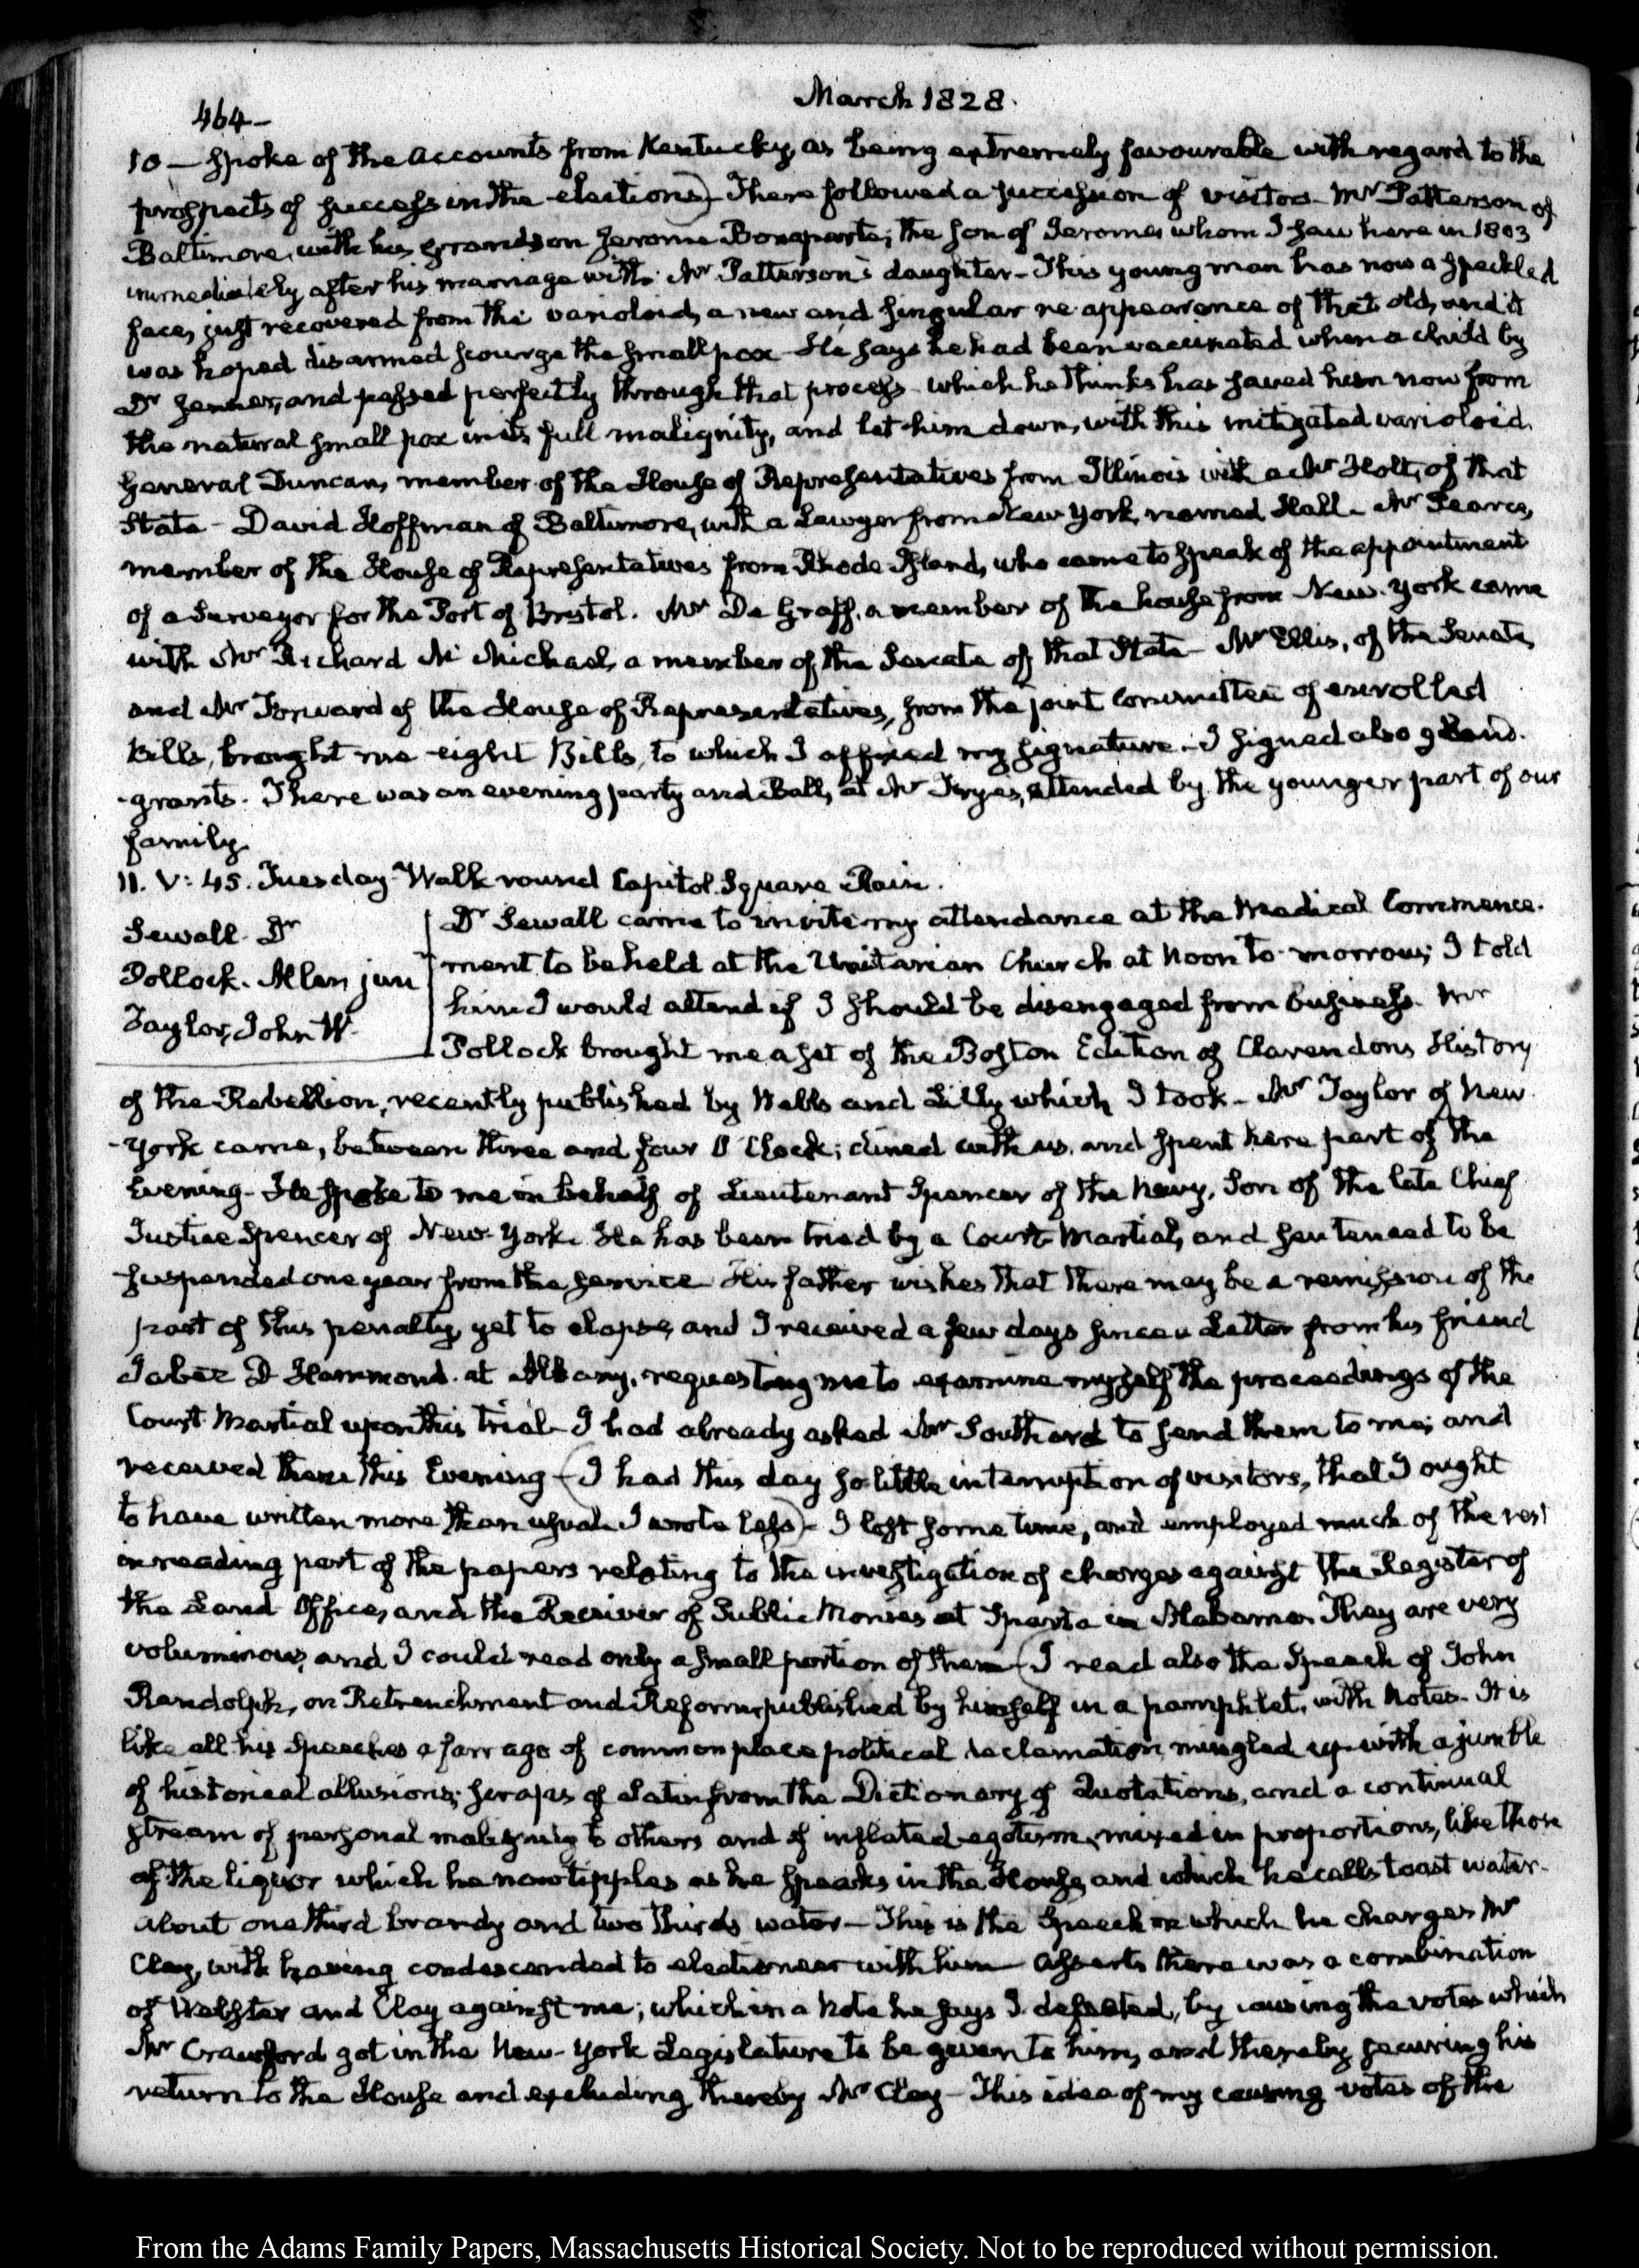 March 1828.
464-
10 — Spoke of the accounts from Kentucky, as being extremely favourable with regard to the
prospects of success in the elections) — There followed a succession of visitors — Mr Patterson of
Baltimore, with his grandson Jerome Bonaparte; the son of Jerome whom I saw here in 1803
immediately after his marriage with Mr Patterson's daughter — This young man has now a speckled
face, just recovered from the varioloid, a new and singular re-appearance of that old, and it
was hoped disarmed scourge the small pox — He says he had been vaccinated when a child by
Dr Jenner, and passed perfectly through that process — which he thinks has saved him now from
the natural small pox in its full malignity, and let him down, with this mitigated varioloid.
General Duncan, member of the House of Representatives from Illinois with a Mr Holt, of that
State — David Hoffman of Baltimore, with a Lawyer from New York, named Hall — Mr Pearce,
member of the House of Representatives from Rhode Island, who came to speak of the appointment
of a Surveyor for the Port of Bristol. Mr De Graff, a member of the house from New-York came
with Mr Richard Mc Michael, a member of the Senate of that State — Mr Ellis, of the Senate,
and Mr Forward of the House of Representatives, from the joint Committee of enrolled
Bills, brought me eight Bills, to which I affixed my signature — I signed also 9 Land-
-grants. There was an evening party and Ball, at Mr Frye's, attended by the younger part of our
family.
11. V: 45. Tuesday — Walk round Capitol Square Rain.
Sewall. Dr
Pollock. Allan jun
Taylor, John W.
Dr Sewall came to invite my attendance at the Medical Commence-
-ment to be held at the Unitarian Church at Noon to-morrow; I told
him I would attend if I should be disengaged from business. Mr
Pollock brought me a set of the Boston Edition of Clarendon's History
of the Rebellion, recently published by Wells and Lilly which I took — Mr Taylor of New-
-York came, between three and four O'Clock; dined with us, and spent here part of the
Evening — He spoke to me in behalf of Lieutenant Spencer of the Navy, Son of the late Chief
Justice Spencer of New-York. He has been tried by a Court-Martial, and sentenced to be
suspended one year from the service. His father wishes that there may be a remission of the
part of this penalty, yet to elapse, and I received a few days since a Letter from his friend
Jabez D Hammond at Albany, requesting me to examine myself the proceedings of the
Court Martial upon this trial — I had already asked Mr Southard to send them to me; and
received them this Evening — (I had this day so little interruption of visitors, that I ought
to have written more than usual. I wrote less) — I lost some time, and employed much of the rest
in reading part of the papers relating to the investigation of charges against the Register of
the Land Office, and the Receiver of Public Monies at Sparta in Alabama. They are very
voluminous, and I could read only a small portion of them — (I read also the Speech of John
Randolph, on Retrenchment and Reform published by himself in a pamphlet, with Notes — It is
like all his Speeches a farrago of commonplace political declamation, mingled up with a jumble
of historical allusions; scraps of Latin from the Dictionary of Quotations, and a continual
stream of personal malignity to others and of inflated egotism, mixed in proportions, like those
of the liquor which he now tipples as he speaks in the House, and which he calls toast water —
about one third brandy and two thirds water — This is the Speech in which he charges Mr
Clay, with having condescended to electioneer with him — Asserts there was a combination
of Webster and Clay against me; which in a Note he says I defeated, by causing the votes which
Mr Crawford got in the New-York Legislature to be given to him, and thereby securing his
return to the House and excluding thereby Mr Clay — This idea of my causing votes of the
From the Adams Family Papers, Massachusetts Historical Society. Not to be reproduced without permission.